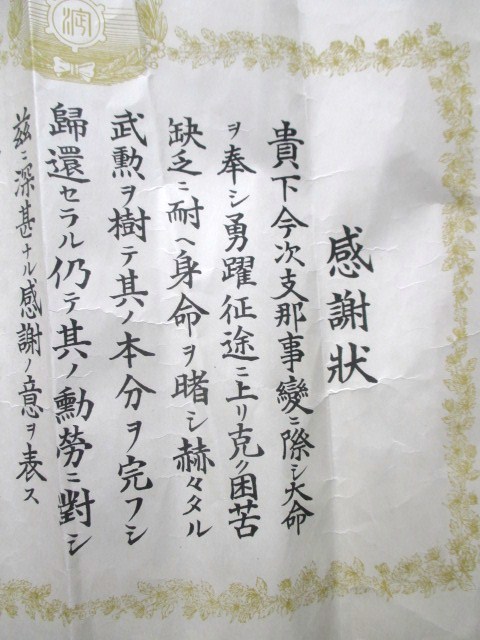 感謝狀
貴下今次支那事變ニ際シ大命
ヲ奉シ勇躍征途ニ上リ克ク困苦
缺乏ニ耐ヘ身命ヲ賭シ赫々タル
武勲ヲ樹テ其ノ本分ヲ完フシ
歸還セラル仍テ其ノ勳勞ニ對シ
茲ニ深甚ナル感謝ノ意ヲ表ス